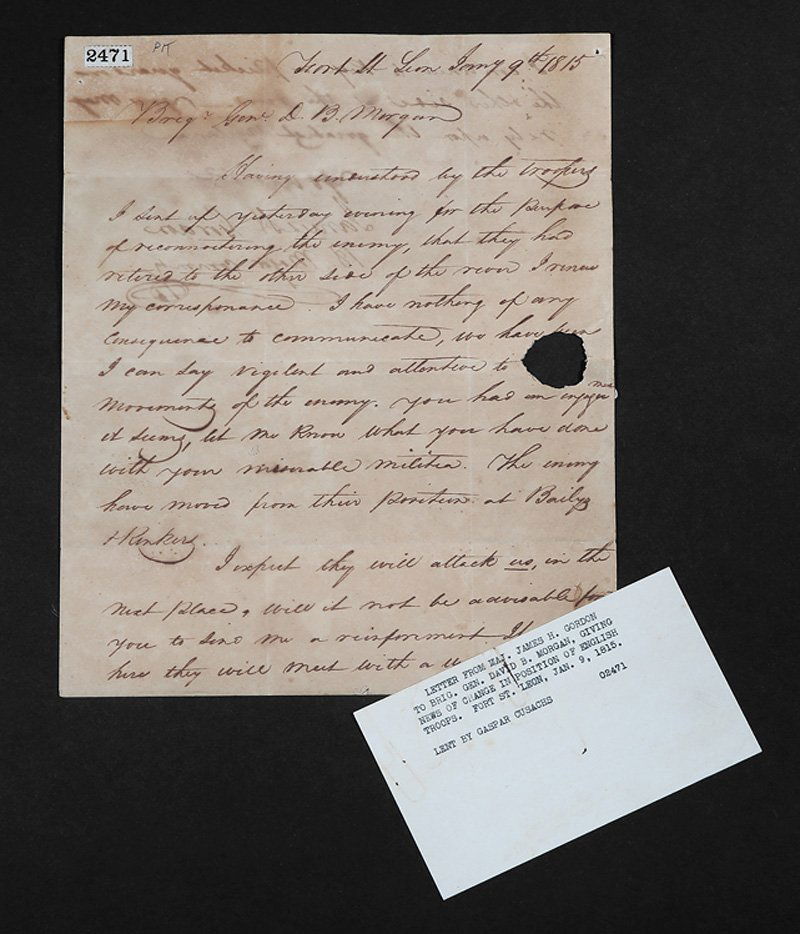 2471
PK
Fort St Leon Jany 9th 1815
Brigr Genl. D. B. Morgan
Having understood by the troopers
I sent up yesterday evening for the purpose
of reconnoitering the enemy, that they had
retired to the other side of the river I renew
my correspondance. I have nothing of any
consequence to communicate, we have been
I can say vigilent and attentive to
movements of the enemy. you had an
it seems, let me know what you have done
with your miserable militia. The enimy
have moved from their position at Bailys
& Rinkers.
I expect they will attack us, in the
next place, will it not be advisable for
you to send me a reinforcment If
here they will meet with a
LETTER FROM MAJ. JAMES H. GORDON
TO BRIG. GEN. DAVID B. MORGAN, GIVING
NEWS OF CHANGE IN POSITION OF ENGLISH
TROOPS. FORT ST. LEON, JAN. 9, 1815.
02471
LENT BY GASPAR CUSACHS